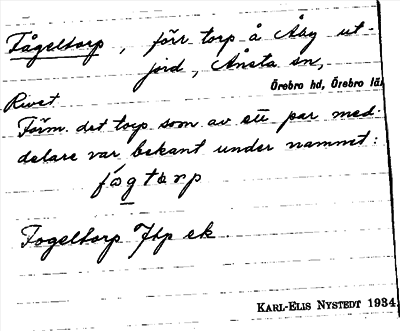 Fågeltorp, förr torp å Åby ut-
jord, Ånsta sn,
Örebro hd, Örebro län
Rivet.
Förm. det torp som av ett par med-
delare var bekant under namnet:
fógtɑrp
Fogeltorp Jtp ek.
KARL-ELIS NYSTEDT 1934